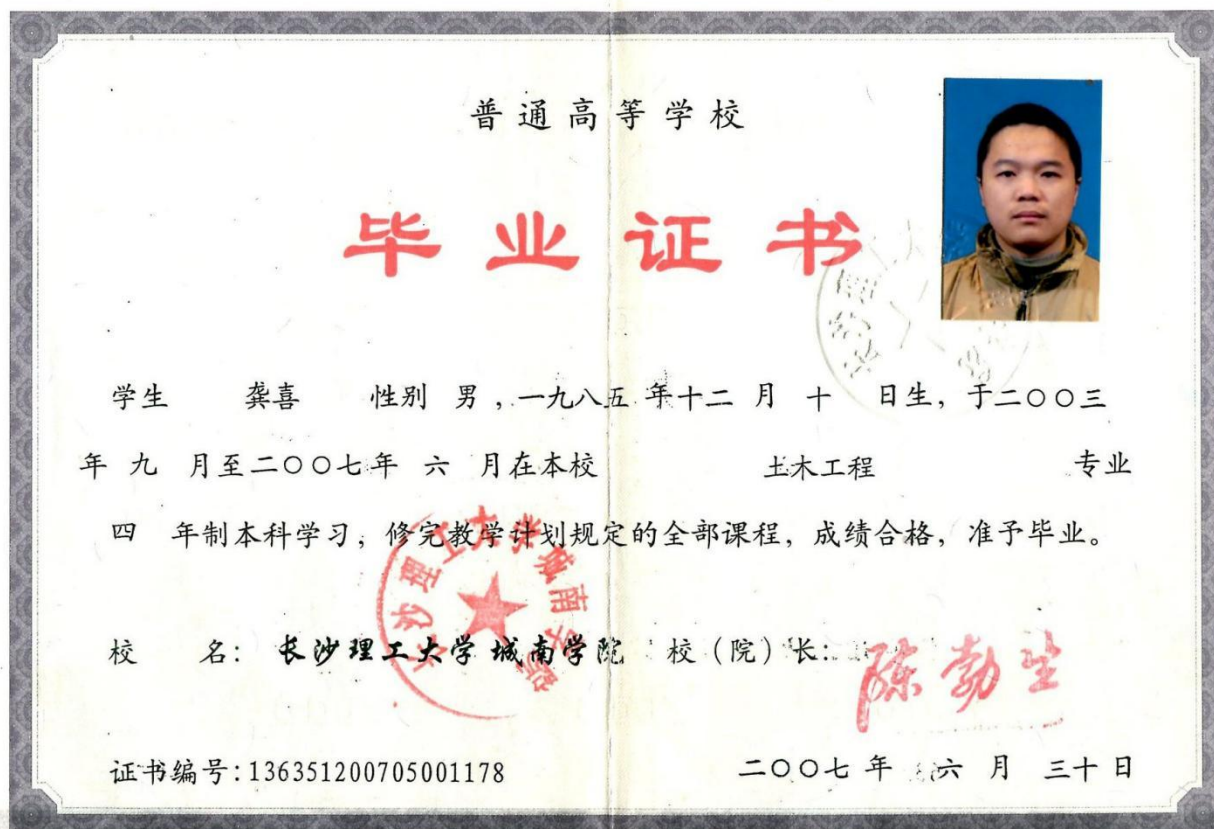 普通高等学校
毕业证书
学生 龚喜 性别 男，一九八五年十二月十日生，于二〇〇三
年九月至二〇〇七年六月在本校 土木工程 专业
四年制本科学习，修完教学计划规定的全部课程，成绩合格，准予毕业。
长沙理工大学城南学院
校 名：长沙理工大学城南学院 校（院）长：
证书编号：136351200705001178 二〇〇七年六月三十日